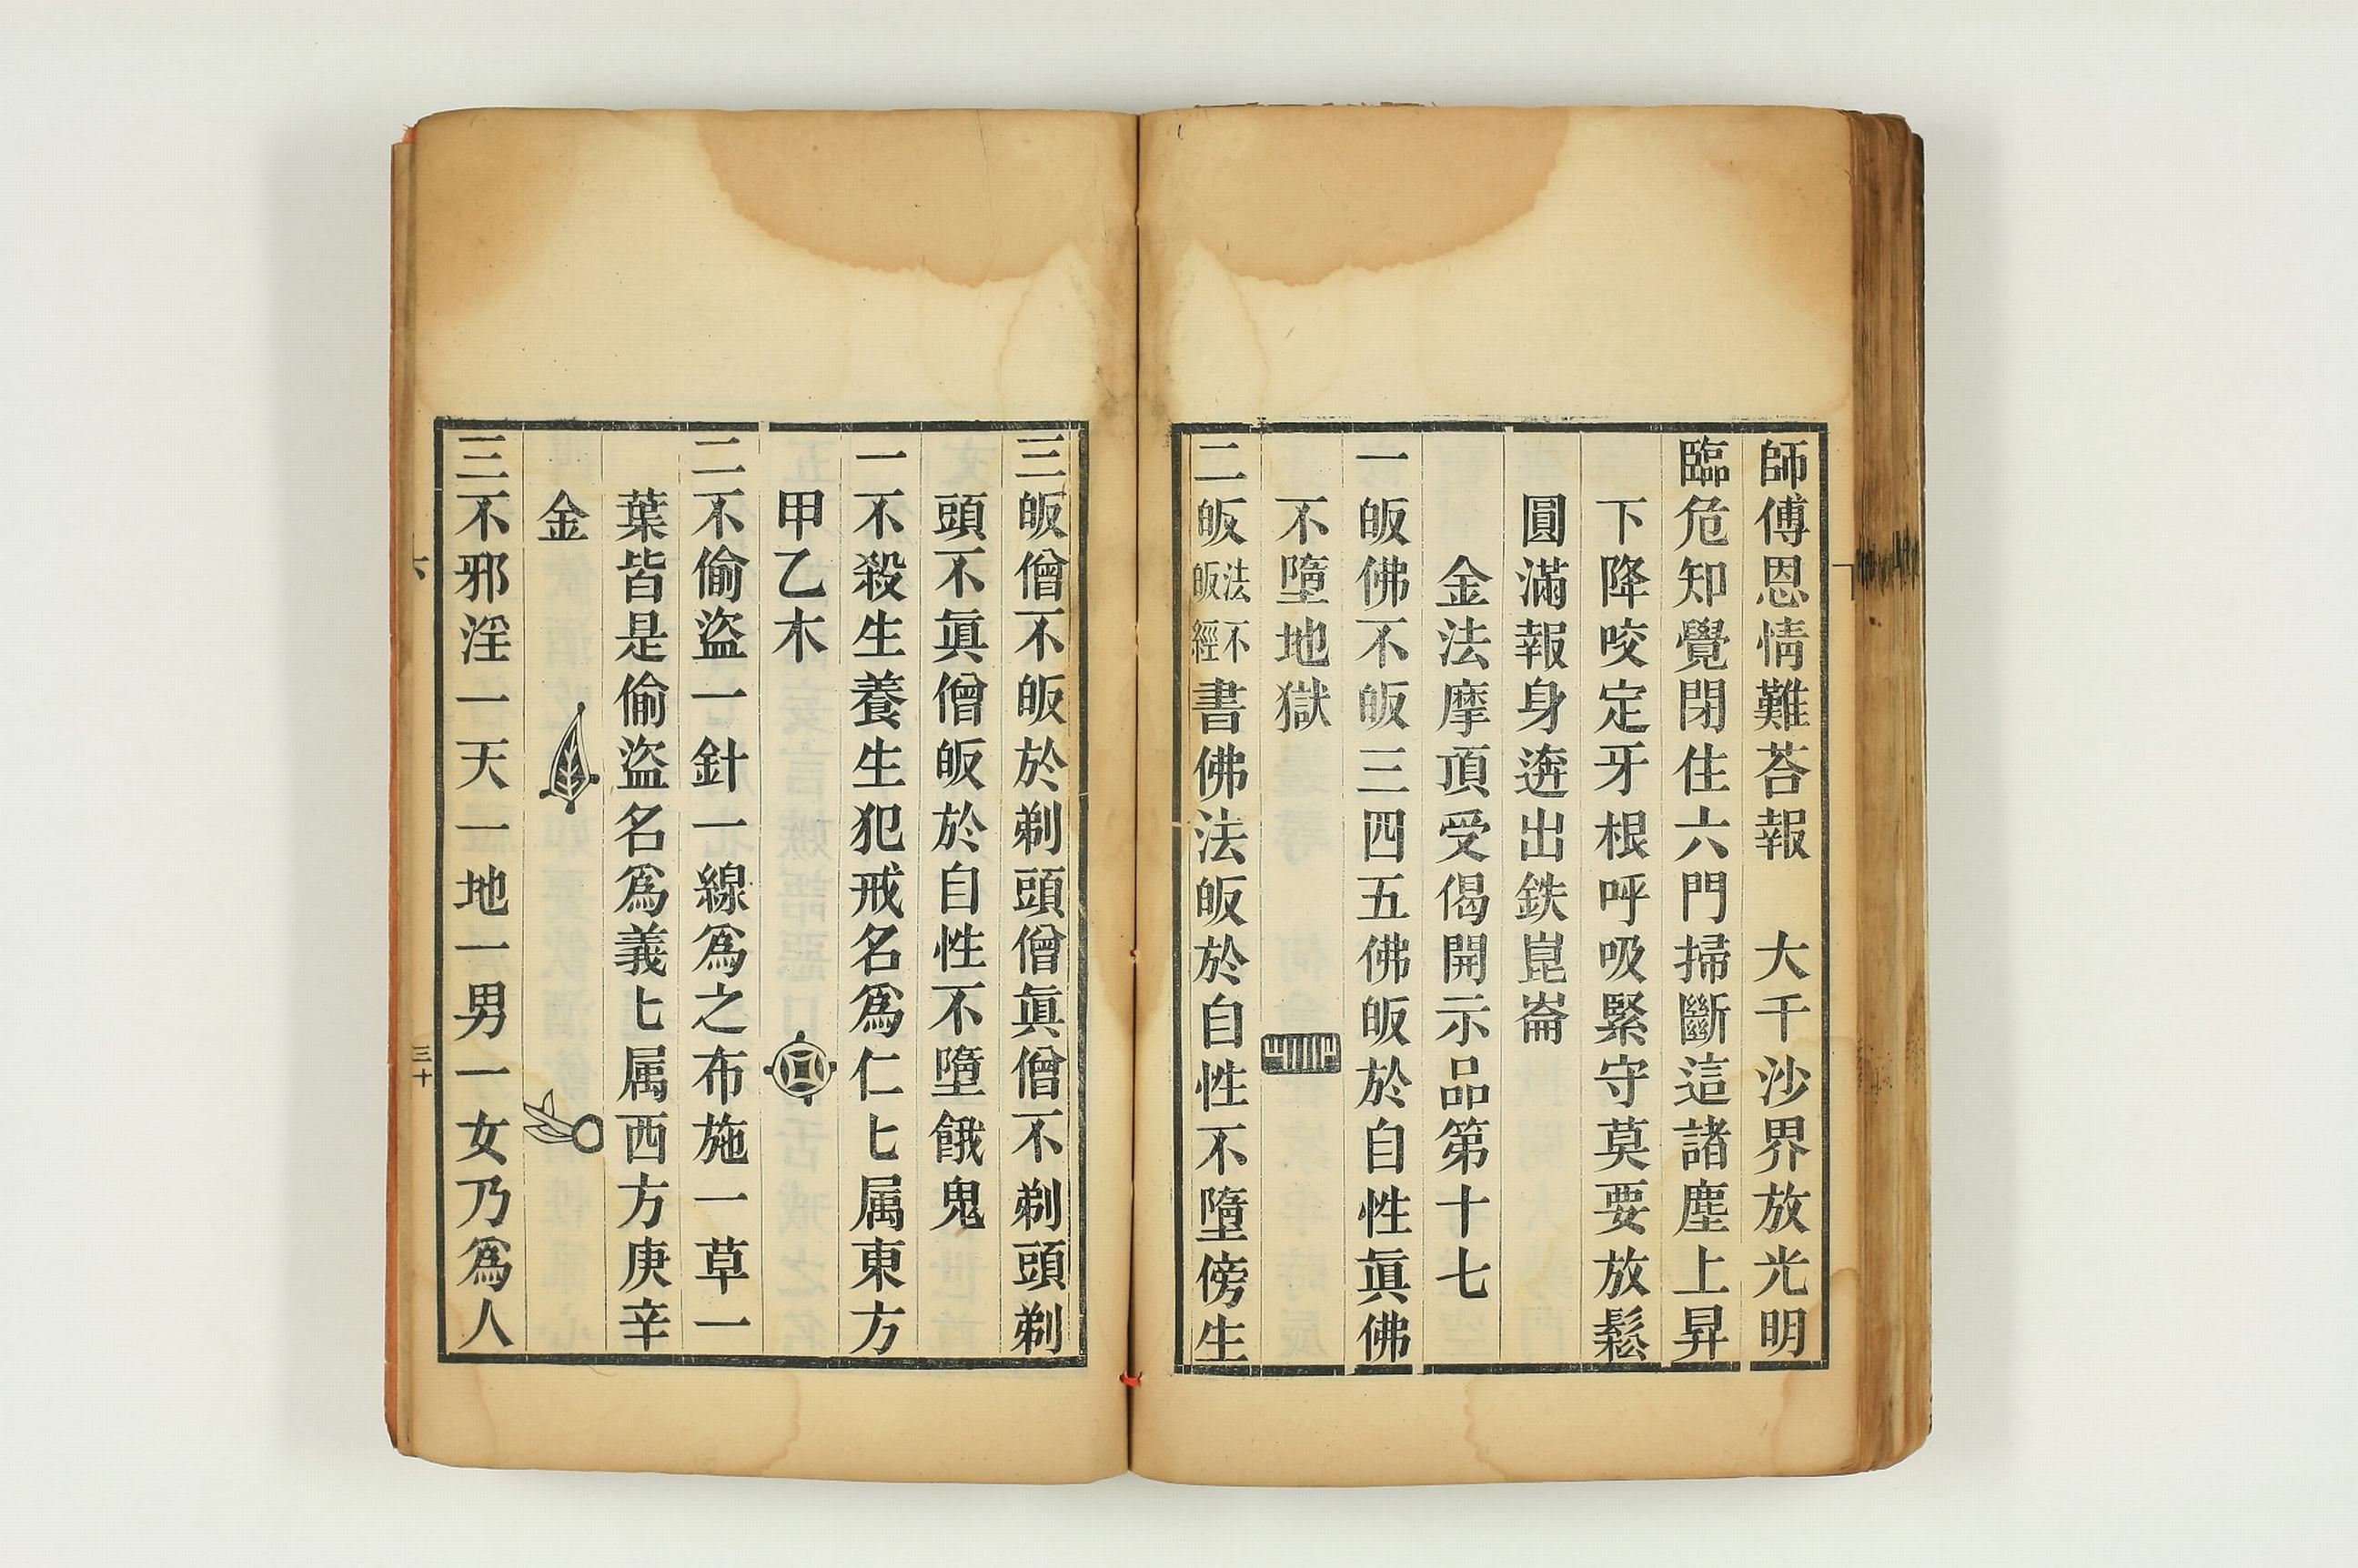 師傅恩情難荅報　大千沙界放光明
臨危知覺閉住六門掃斷這諸塵上昇
下降咬定牙根呼吸緊守莫要放鬆
圓滿報身迯出鉄崑崙
金法摩頂受偈開示品第十七
一皈佛不皈三四五佛皈於自性眞佛
不墮地獄
二皈法不皈經書佛法皈於自性不墮傍生
三皈僧不皈於剃頭僧眞僧不剃頭剃
頭不眞僧皈於自性不墮餓鬼
一不殺生養生犯戒名爲仁匕属東方
甲乙木
二不偷盜一針一線爲之布施一草一
葉皆是偷盜名爲義匕属西方庚辛
金
三不邪淫一天一地一男一女乃爲人
三十